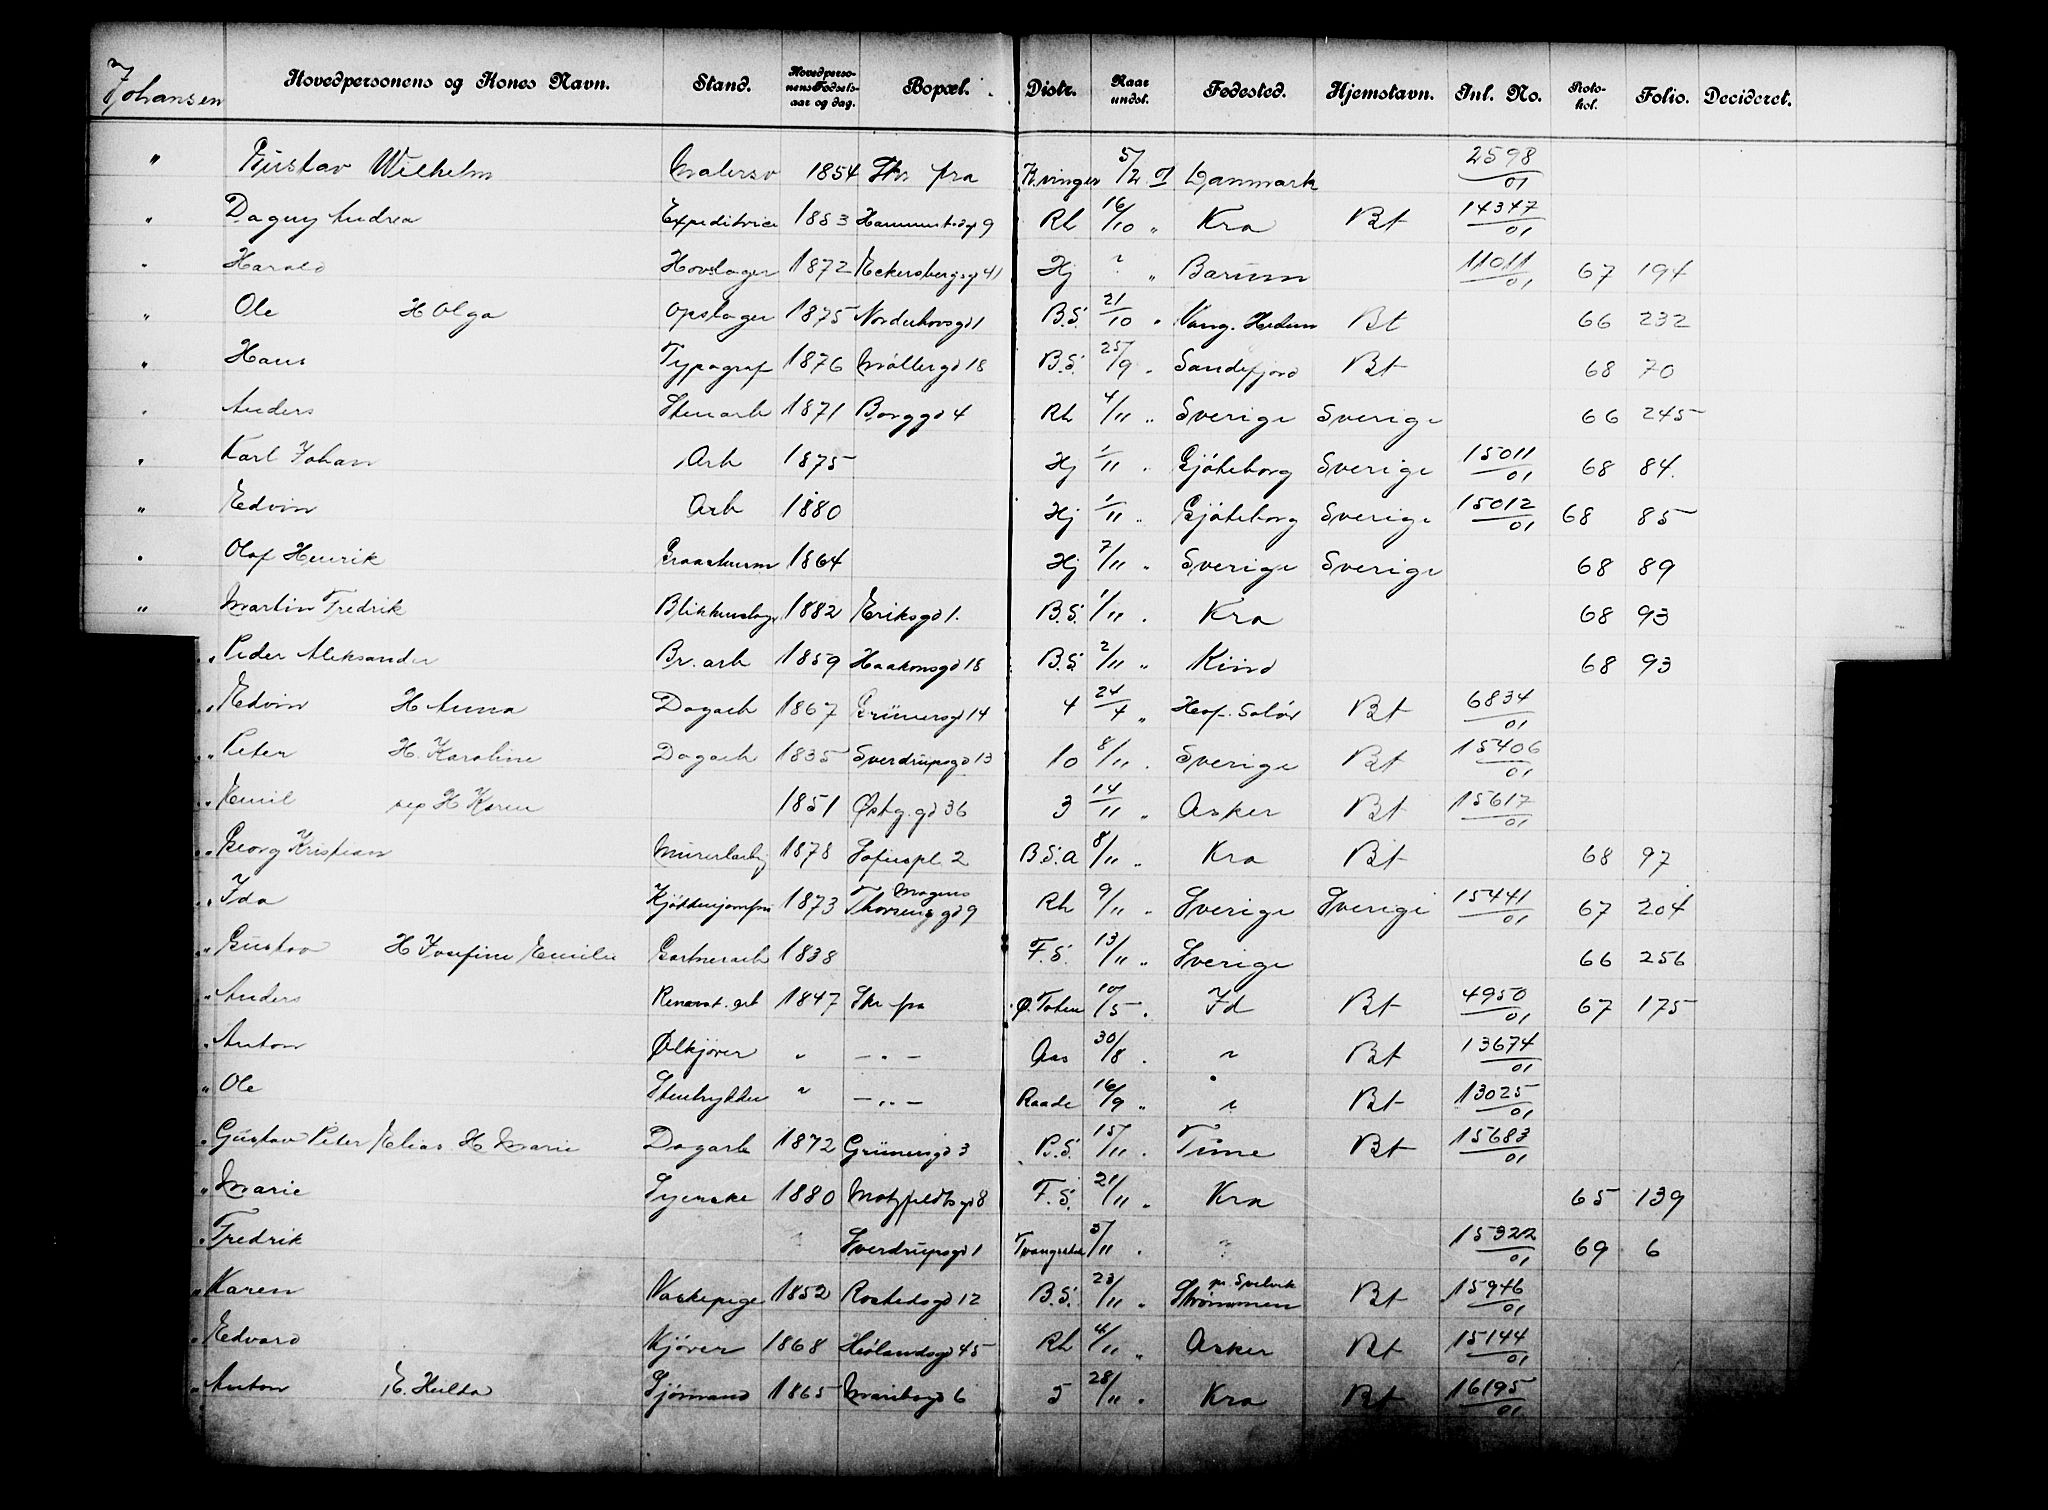 Johansen Hovedpersonens og Kones Navn. Stand. Hovedpersonens Fødselsaar og dag. Bopæl. Distr. Naar undst. Fødested. Hjemstavn. Inl. No. Protokol. Folio. Decideret.
" Gustav Wilhelm Malersv 1854 Skr fra Kvinger 5/2 01 Danmark 2598/01
" Dagny Andrea Expeditrice 1883 9 Rh 16/10 " Kra Bt 14347/01
" Harald Hovslager 1872 Eckersbergsgd 41 Hj ? " Barum 11011/01 67 194
" Ole H Olga Opslager 1875 Norderhovsgd 1 B.S. 21/10 " Vang. Hedem Bt 66 232
" Hans Typograf 1876 Møllergd 18 B.S. 25/9 " Sandefjord Bt 68 70
" Anders Stenarb 1871 Borggd 4 Rh 4/11 " Sverige Sverige 66 245
" Karl Johan Arb 1875 Hj 1/11 " Gjøteborg Sverige 15011/01 68 84.
" Edvin Arb 1880 Hj 1/11 " Gjøteborg Sverige 15012/01 68 85
" Olaf Henrik 1864 Hj 7/11 " Sverige Sverige 68 89
" Martin Fredrik Blikkenslag 1882 Eriksgd 1. B.S. 1/11 " Kra 68 93
" Peder Aleksander Br. arb 1859 Haakonsgd 18 B.S 2/11 " Kind 68 93
" Edvin H Anna Dagarb 1867 Grünersgd 14 4 24/4 " Hof. Solør Bt 6834/01
" Peter H. Karoline Dagarb 1835 Sverdrupsgd 13 10 8/11 " Sverige Bt 15406/01
" Emil sep H Karen 1851 Østbg. gd 36 3 14/11 " Asker Bt 15617/01
" Georg Kristian Murerlærl 1878 Sofiespl. 2 B.S.A 8/11 " Kra Bt 68 97
" Ida 1873 Magnus Thorsens gd 9 Rh 9/11 " Sverige Sverige 15441/01 67 204
" Gustav H Josefine Emilie Gartnerarb 1838 F.S. 13/11 " Sverige 66 256
" Anders Renovat. arb 1847 Skr fra Ø. Toten 10/5 " Id Bt 4950/01 67 175
" Anton Ølkjører " — " — Aas 30/8 " " Bt 13674/01
" Ole Stenbrydder " — " — Raade 16/9 " " Bt 13025/01
" Gustav Peter Elias H Marie Dagarb 1872 Grünersgd 3 B.S. 15/11 " Tune Bt 15683/01
" Marie Syerske 1880 Motzfeldtsgd 8 F.S. 21/11 " Kra 65 139
" Fredrik Sverdrupsgd 1 5/11 " ? 15322/01 69 6
" Karen Vaskepige 1852 Rostedsgd 12 B.S. 23/11 " Strømmen pr. Svelvik Bt 15946/01
" Edvard Kjører 1868 Hølandsgd 45 Rh 4/11 " Asker Bt 15144/01
" Anton E. Hulda Sjømand 1865 Maribogd 6 5 28/11 " Kra Bt 16195/01